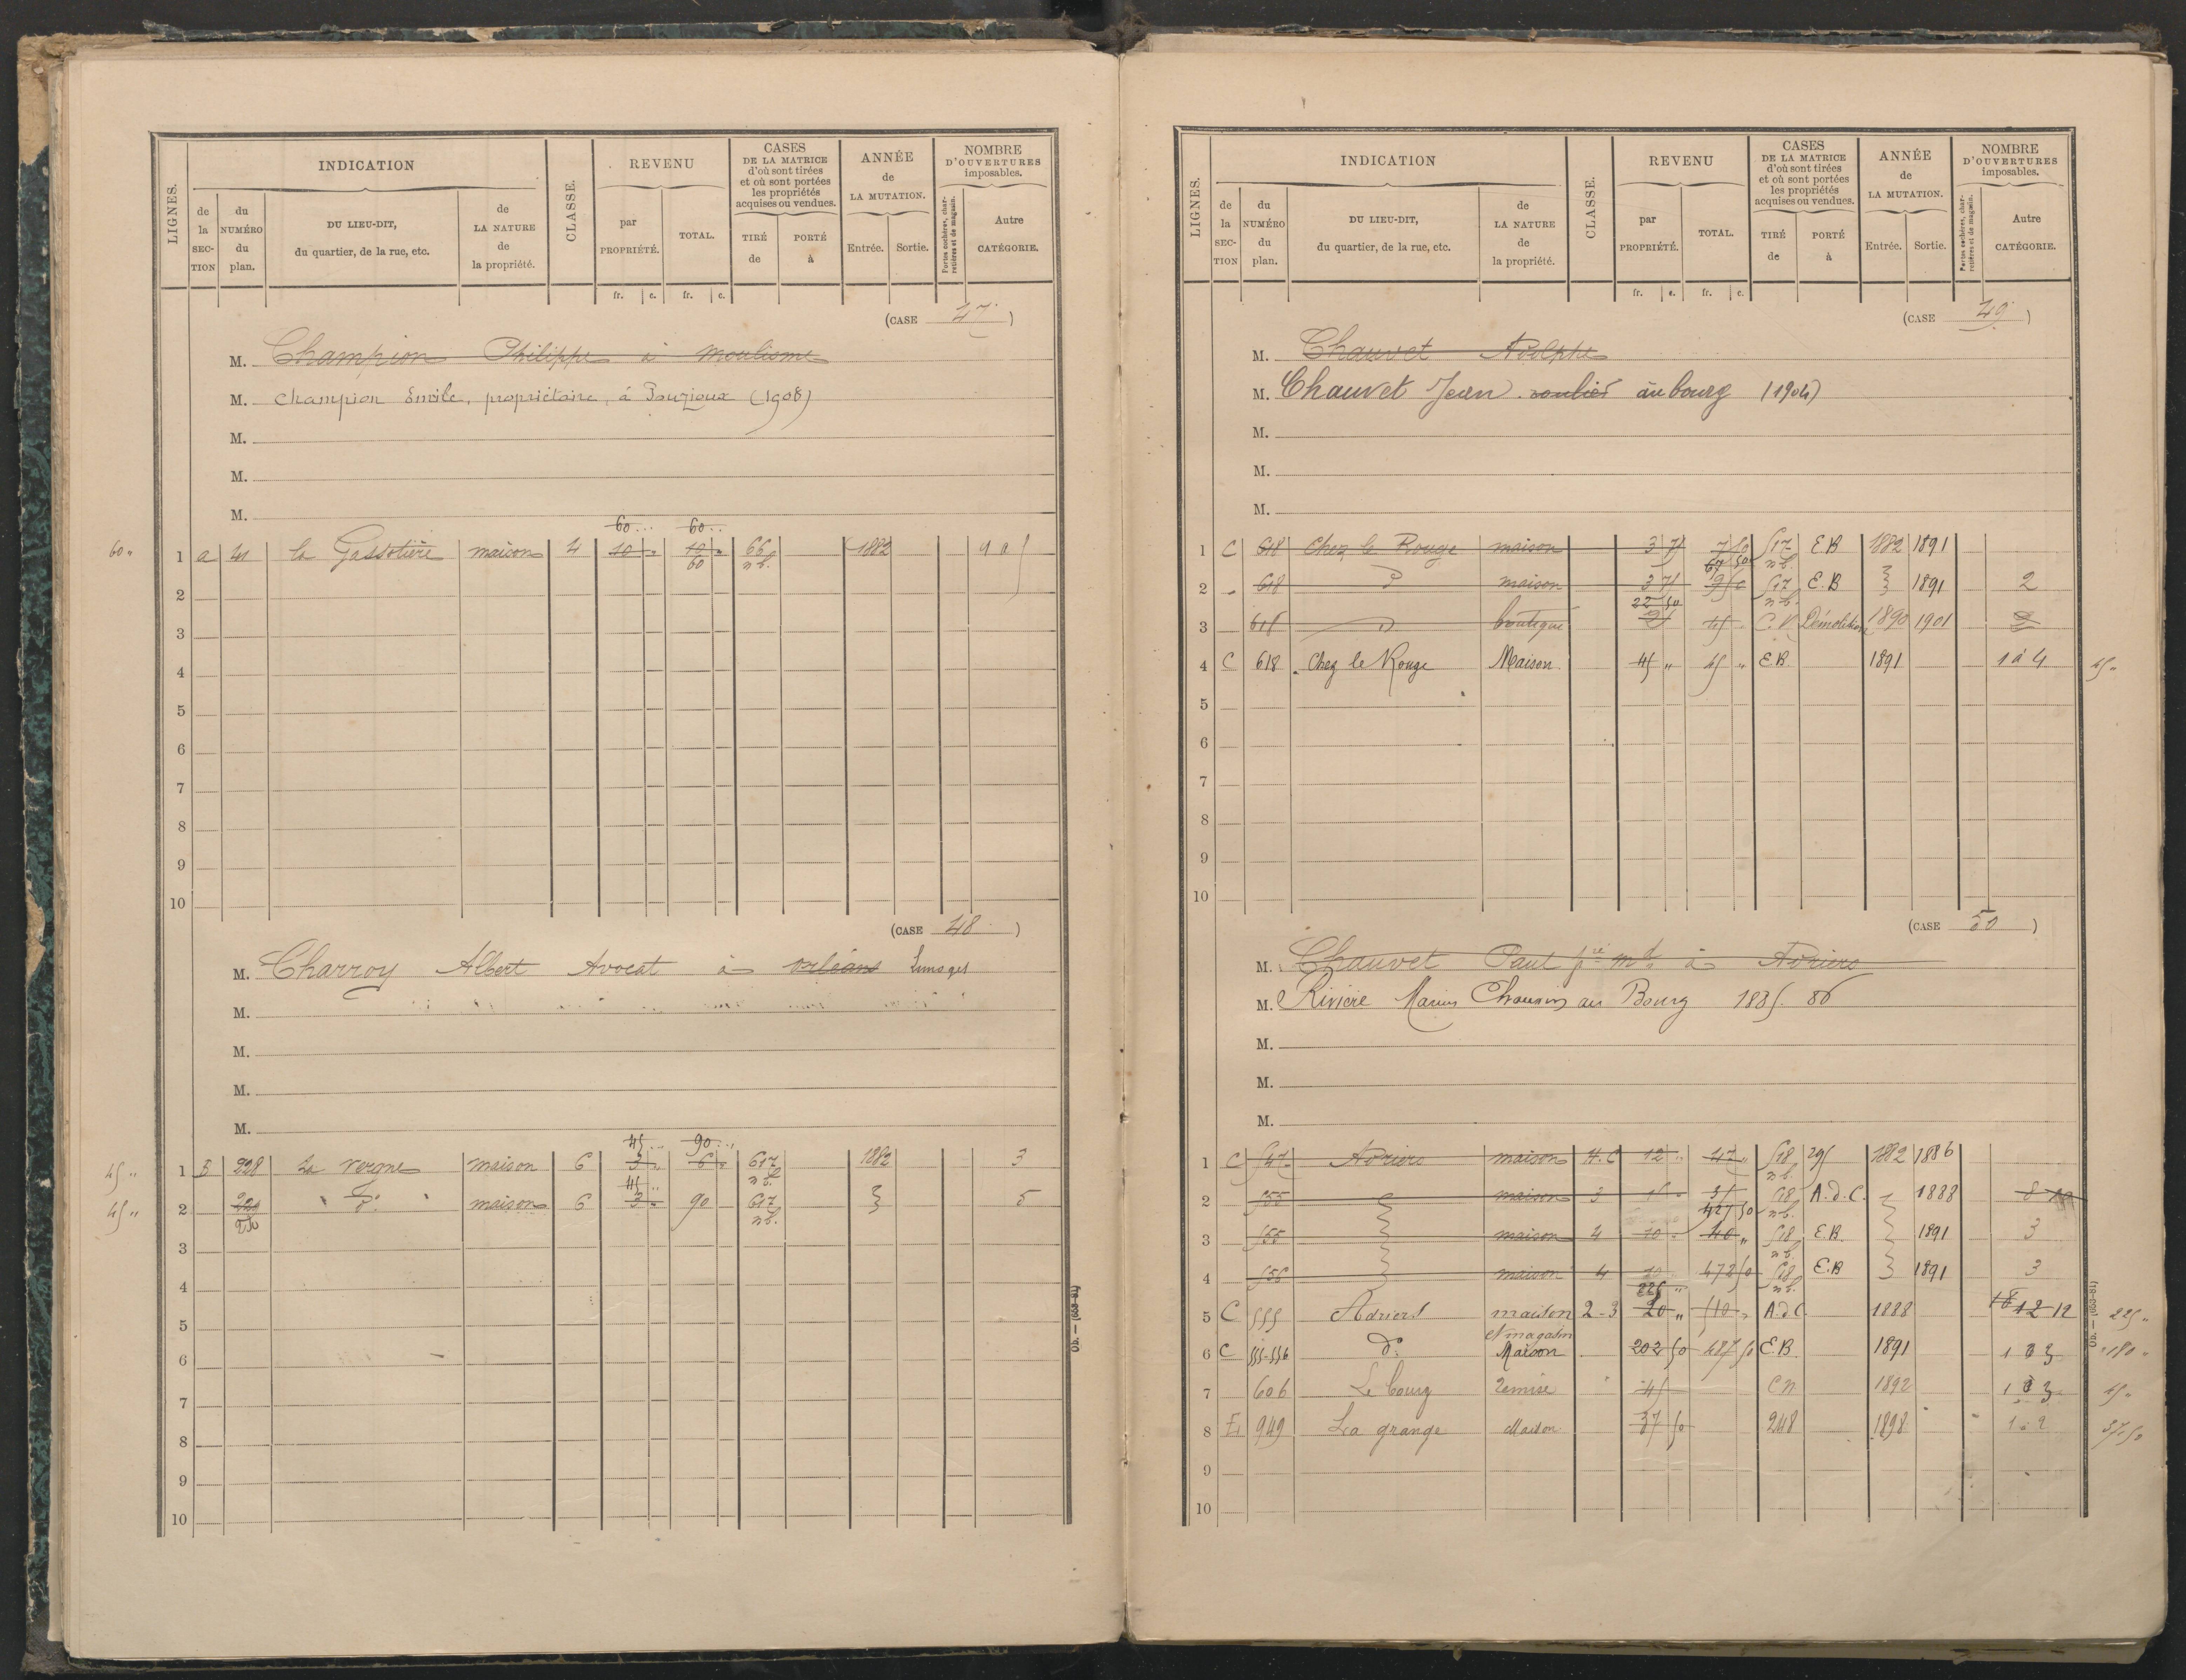 LIGNES.
INDICATION
de la SECTION
du NUMÉRO du plan.
DU LIEU-DIT, du quartier, de la rue, etc.
de LA NATURE de la propriété.
CLASSE.
REVENU
par PROPRIÉTÉ.
TOTAL.
fr. c. fr. c.
CASES DE LA MATRICE d'où sont tirées et où sont portées les propriétés acquises ou vendues.
TIRÉ de
PORTÉ à
ANNÉE de LA MUTATION.
Entrée. Sortie.
NOMBRE D'OUVERTURES imposables.
Portes cochères, charretières et de magasin.
Autre CATÉGORIE.
(CASE 47)
M. Champion Philippe à Moulisme
M. Champion Emile, propriétaire, à Pouzioux (1908)
M.
M.
M.
60.. 60..
60 " 1 a 41 la Gassotière maison 4 10 " 10 " 66 1882 9 a
60 n b.
2
3
4
5
6
7
8
9
10
(CASE 48)
M. Charroy Albert Avocat à Orléans Limoges
M.
M.
M.
M.
45.. 90..
45 " 1 B 228 La Vergne maison 6 3 " 6 " 617 1882 3
45.. n b.
45 " 2 229 " d°. " maison 6 3 " 90 617 5
n b.
3
4
5
6
7
8
9
10
LIGNES.
INDICATION
de la SECTION
du NUMÉRO du plan.
DU LIEU-DIT, du quartier, de la rue, etc.
de LA NATURE de la propriété.
CLASSE.
REVENU
par PROPRIÉTÉ.
TOTAL.
fr. c. fr. c.
CASES DE LA MATRICE d'où sont tirées et où sont portées les propriétés acquises ou vendues.
TIRÉ de
PORTÉ à
ANNÉE de LA MUTATION.
Entrée. Sortie.
NOMBRE D'OUVERTURES imposables.
Portes cochères, charretières et de magasin.
Autre CATÉGORIE.
(CASE 49)
M. Chauvet Adolphe
M. Chauvet Jean roulier au bourg (1904)
M.
M.
M.
1 C 618 Chez le Rouge maison 3 75 7 50 517 E B 1882 1891
67 50 n b.
2 " 618 maison 3 75 517 E. B 1891 2
22 50 n b.
3 boutique 45 Démolition 1890 1901 2
4 C 618 Chez le Rouge Maison 45 " 45 " E B. 1891 1 à 4 45 "
5
6
7
8
9
10
(CASE 50)
M. Chauvet Paul md à Adriers
M. Rivière Marius au Bourg 1885. 86
M.
M.
M.
1 C 547 Adriers maison H. C 12 " 47 " 518 295 1882 1886
n b.
2 555 maison 3 518 A. d. C. 1888 8
427 50 n b.
3 555 maison 4 10 " 40 " 518 E. B. 1891 3
n b.
4 556 maison 4 10 472 50 518 E. B 1891 3
225 " n b.
5 C 555 Adriers maison 2-3 20 " 510 " A. d C. 1888 12 12 225 "
et magasin
6 C 555-556 d°. Maison 202 50 487 50 E. B. 1891 180 "
7 606 Le bourg Remise 45 C N 1892 45 "
8 E 949 La grange Maison 37 50 248 1898 1 à 2 37.50
9
10